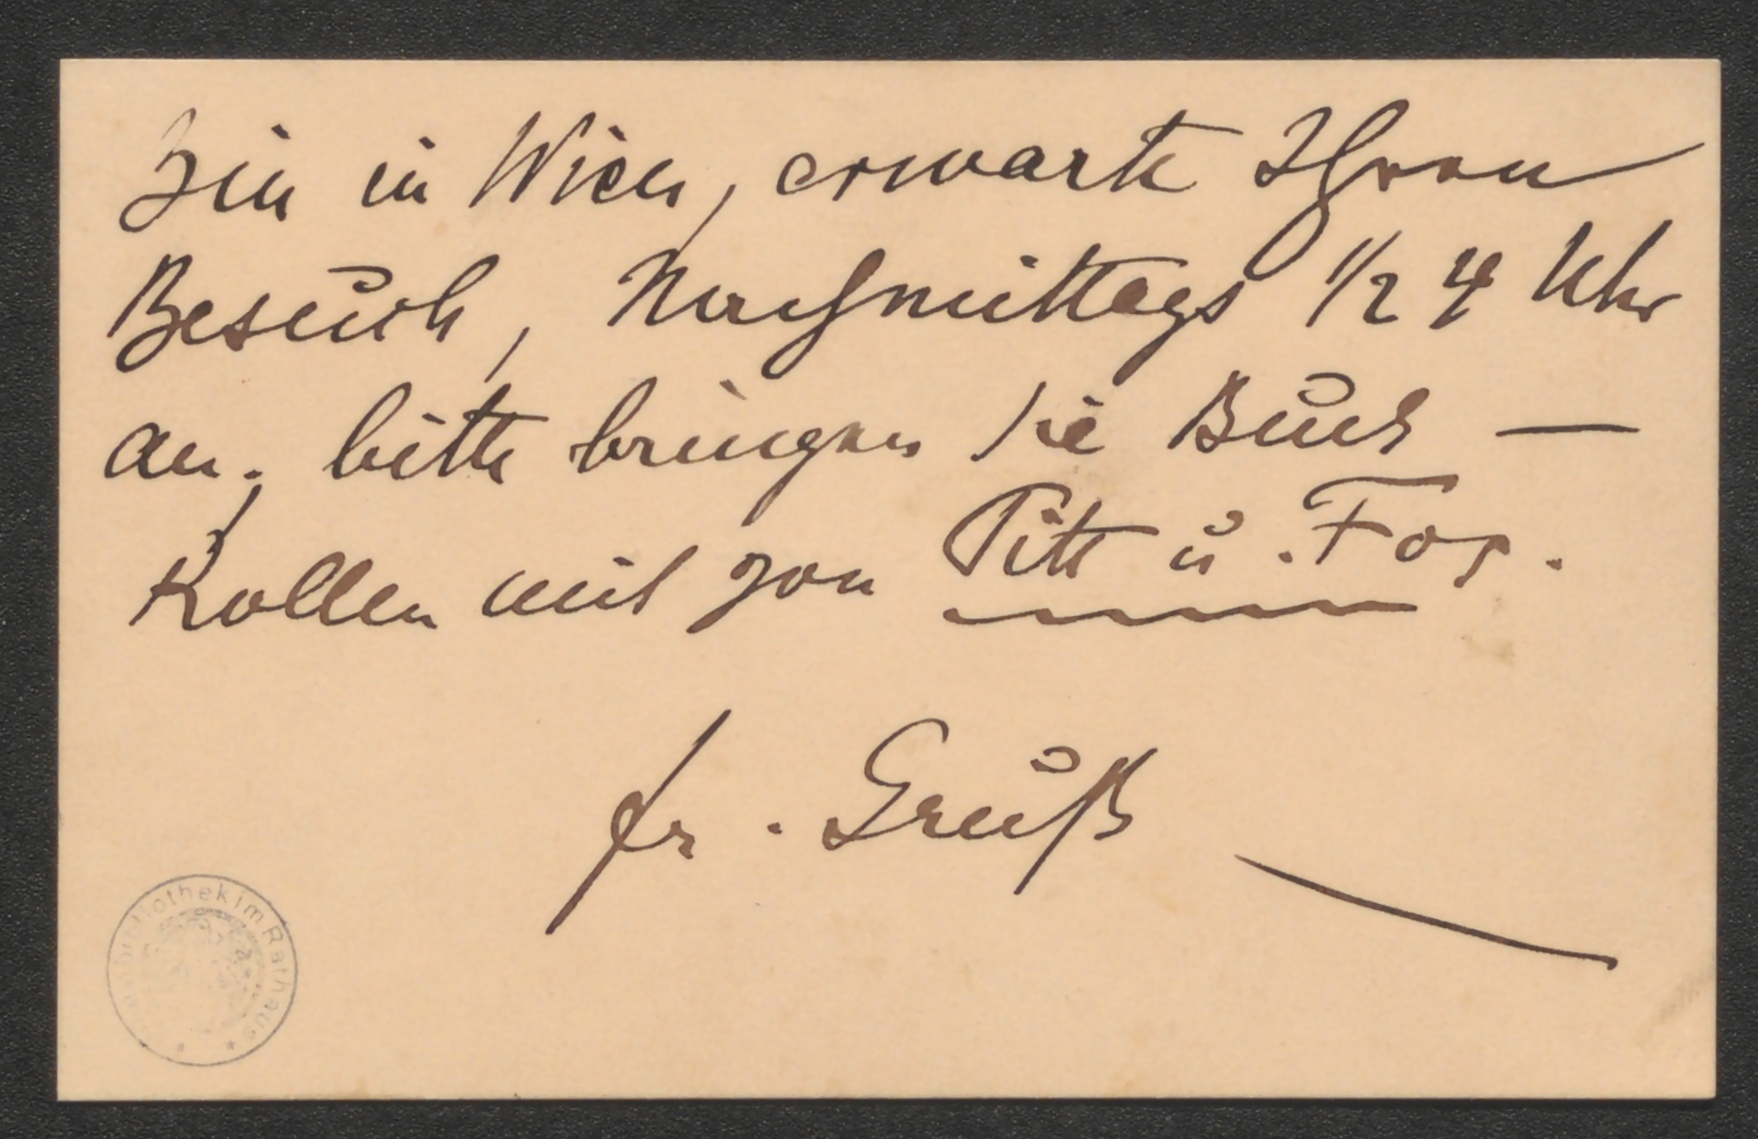 Bin in Wien, erwarte Ihren
Besuch, Nachmittags 1/2 4 Uhr
an. bitte bringen Sie Buch —
Rollen mit von Pitt u. Fox.
fr. Gruß
bibliothek im Rathaus